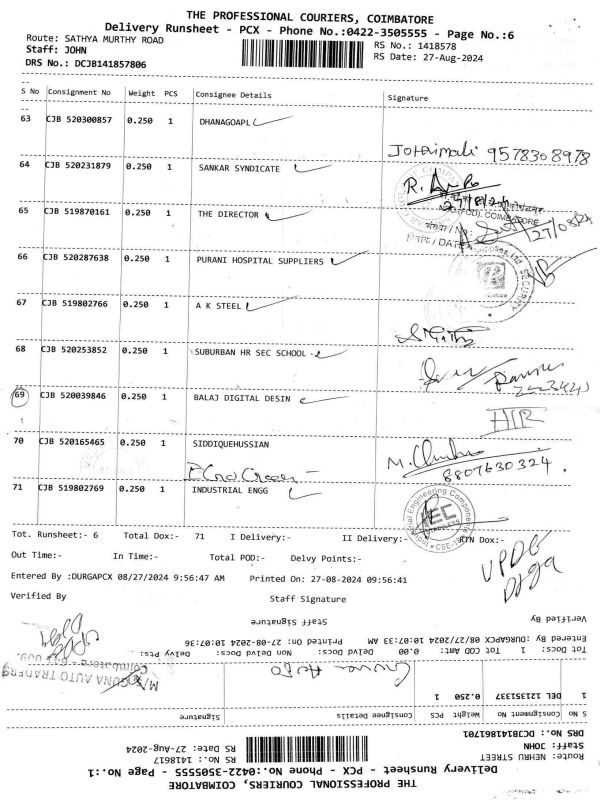 THE PROFESSIONAL COURIERS, COIMBATORE
Delivery Runsheet - PCX - Phone No.:0422-3505555 - Page No.:6
Route: SATHYA MURTHY ROAD
RS No.: 1418578
Staff: JOHN
RS Date: 27-Aug-2024
DRS No.: DCJB141857806
S No Consignment No Weight PCS Consignee Details Signature
63 CJB 520300857 0.250 1 DHANAGOAPL
9578308978
64 CJB 520231879 0.250 1 SANKAR SYNDICATE
65 CJB 519870161 0.250 1 THE DIRECTOR
COIMBATORE
/ DATE
27/08/24
66 CJB 520287638 0.250 1 PURANI HOSPITAL SUPPLIERS
SECURITY
67 CJB 519802766 0.250 1 A K STEEL
68 CJB 520253852 0.250 1 SUBURBAN HR SEC SCHOOL
69 CJB 520039846 0.250 1 BALAJ DIGITAL DESIN
70 CJB 520165465 0.250 1 SIDDIQUEHUSSIAN
8807630324
71 CJB 519802769 0.250 1 INDUSTRIAL ENGG
Industrial Engineering Components
IEC
Tot. Runsheet:- 6 Total Dox:- 71 I Delivery:- II Delivery:- RTN Dox:-
Out Time:- In Time:- Total POD:- Delvy Points:-
Entered By :DURGAPCX 08/27/2024 9:56:47 AM Printed On: 27-08-2024 09:56:41
Verified By Staff Signature
THE PROFESSIONAL COURIERS, COIMBATORE
Delivery Runsheet - PCX - Phone No.:0422-3505555 - Page No.:1
Route: NEHRU STREET
RS No.: 1418617
Staff: JOHN
RS Date: 27-Aug-2024
DRS No.: DCJB141861701
S No Consignment No Weight PCS Consignee Details Signature
1 DEL 121351337 0.250 1
M/s. GUNA AUTO TRADERS
Coimbatore
Tot Docs: 1 Tot COD Amt: 0.00 Delvd Docs: Non Delvd Docs: Delvy Pts:
Entered By :DURGAPCX 08/27/2024 10:33:07 AM Printed On: 27-08-2024 10:07:36
Verified By Staff Signature